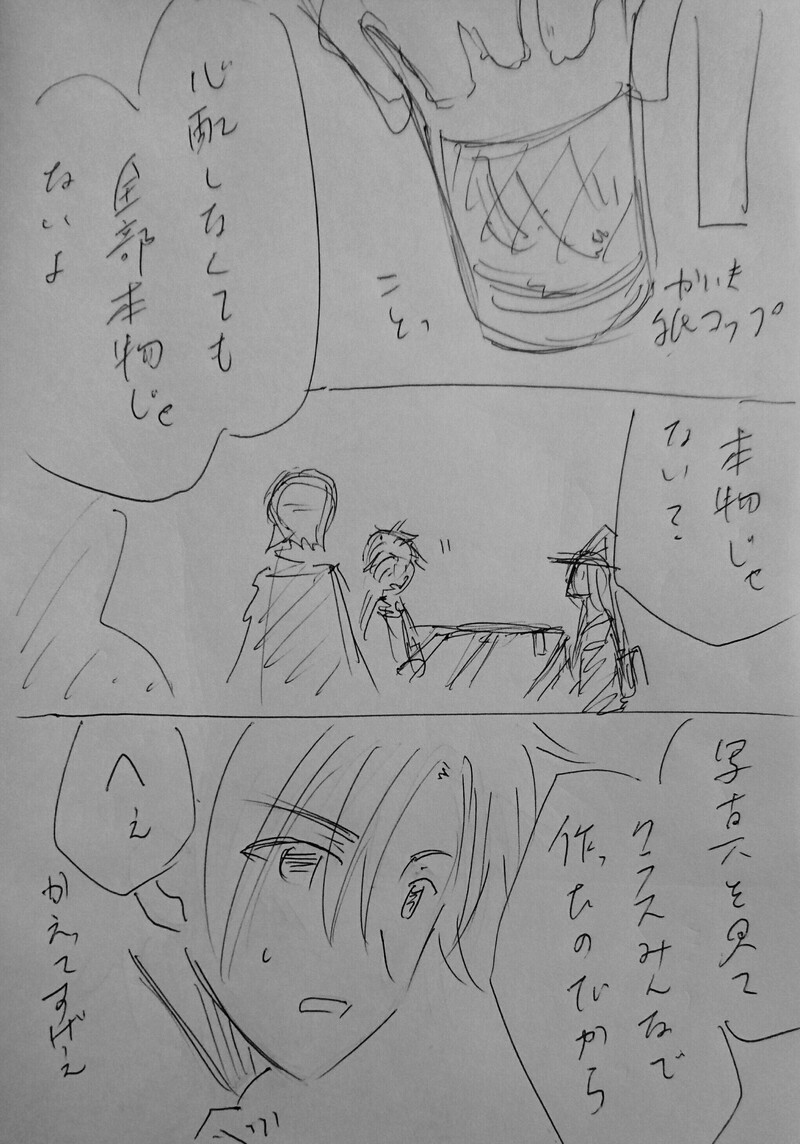 かいき
紙コップ
コトッ
心配しなくても
全部本物じゃ
ないよ
本物じゃ
ないて
写真を見て
クラスみんなで
作ったのだから
へぇ
かえってすげぇ